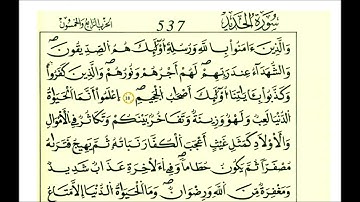 سُورَةُ الْحَدِيدِ 537 الحزب الرابع والخمسون
وَالَّذِينَ ءَامَنُوا بِاللَّهِ وَرُسُلِهِ أُوْلَٰٓئِكَ هُمُ الصِّدِّيقُونَ
وَالشُّهَدَآءُ عِندَ رَبِّهِمْ لَهُمْ أَجْرُهُمْ وَنُورُهُمْ وَالَّذِينَ كَفَرُوا
وَكَذَّبُوا بِـَٔايَٰتِنَآ أُوْلَٰٓئِكَ أَصْحَٰبُ الْجَحِيمِ اعْلَمُوٓا أَنَّمَا الْحَيَوٰةُ
الدُّنْيَا لَعِبٌ وَلَهْوٌ وَزِينَةٌ وَتَفَاخُرٌ بَيْنَكُمْ وَتَكَاثُرٌ فِي الْأَمْوَٰلِ
وَالْأَوْلَٰدِ كَمَثَلِ غَيْثٍ أَعْجَبَ الْكُفَّارَ نَبَاتُهُ ثُمَّ يَهِيجُ فَتَرَىٰهُ
مُصْفَرًّا ثُمَّ يَكُونُ حُطَٰمًا وَفِي الْأَخِرَةِ عَذَابٌ شَدِيدٌ
وَمَغْفِرَةٌ مِّنَ اللَّهِ وَرِضْوَٰنٌ وَمَا الْحَيَوٰةُ الدُّنْيَآ إِلَّا مَتَٰعُ